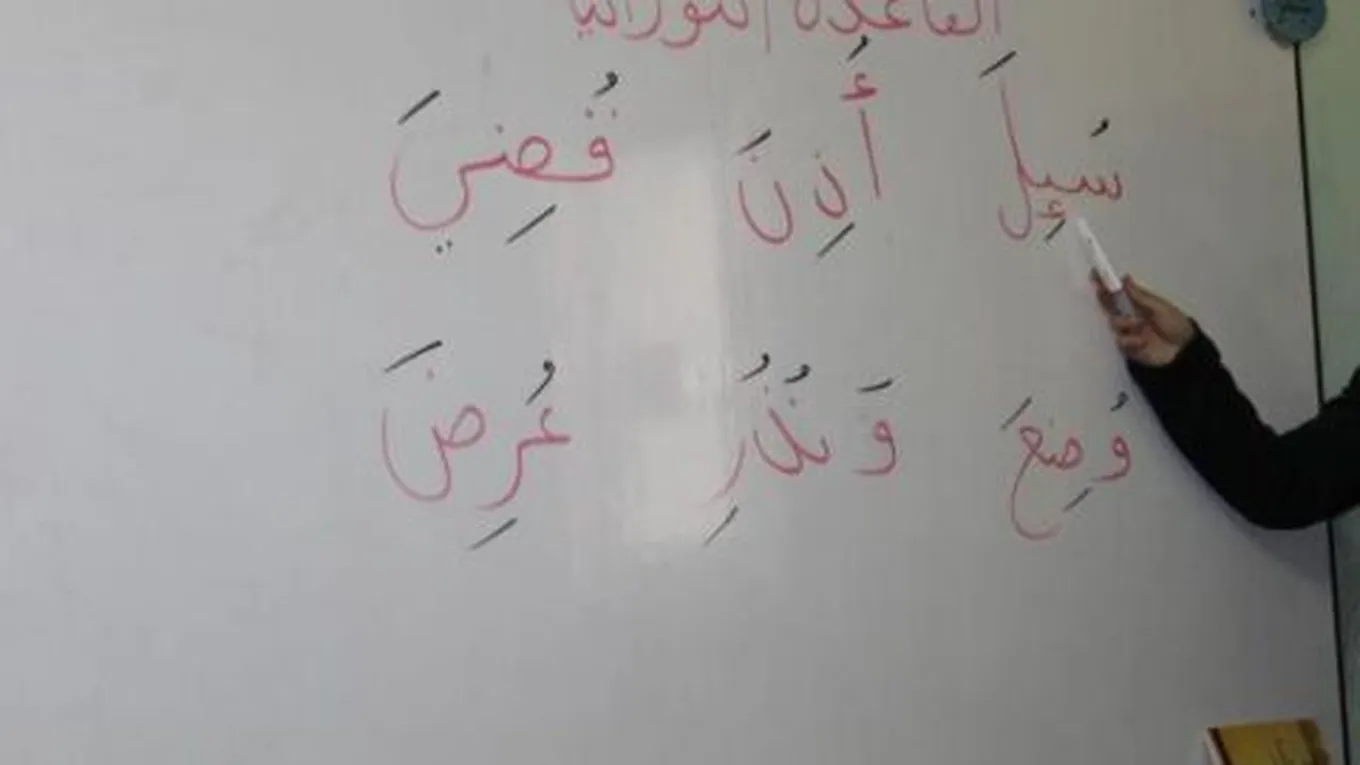 القاعدة النورانية
سُئِلَ أُذِنَ قُضِيَ
وُضِعَ وَنُذُرِ عُرِضَ